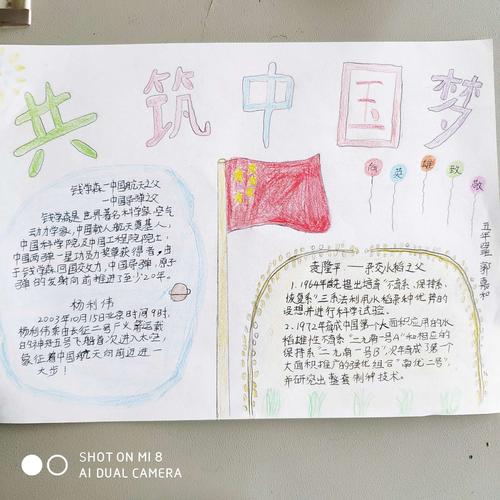 共筑中国梦
向英雄致敬
五年四班 郭嘉和
钱学森—中国航天之父
—中国导弹之父
钱学森是世界著名科学家,空气
动力学家,中国载人航天奠基人,
中国科学院及中国工程院院士,
中国两弹一星功勋奖章获得者,由
于钱学森回国效力,中国导弹,原子
弹的发射向前推进了至少20年。
杨利伟
2003年10月15日北京时间9时,
杨利伟乘由长征二号F火箭运载
的神舟五号飞船首次进入太空,
象征着中国航天向前迈进一
大步!
袁隆平——杂交水稻之父
1.1964年袁提出培育“不育系、保持系、
恢复系”三系法利用水稻杂种优势的
设想并进行科学试验。
2.1972年育成中国第一个大面积应用的水
稻雄性不育系“二九南一号A”和相应的
保持系“二九南一号B”,次年育成了第一个
大面积推广的强优组合“南优二号”,
并研究出整套制种技术。
SHOT ON MI 8
AI DUAL CAMERA